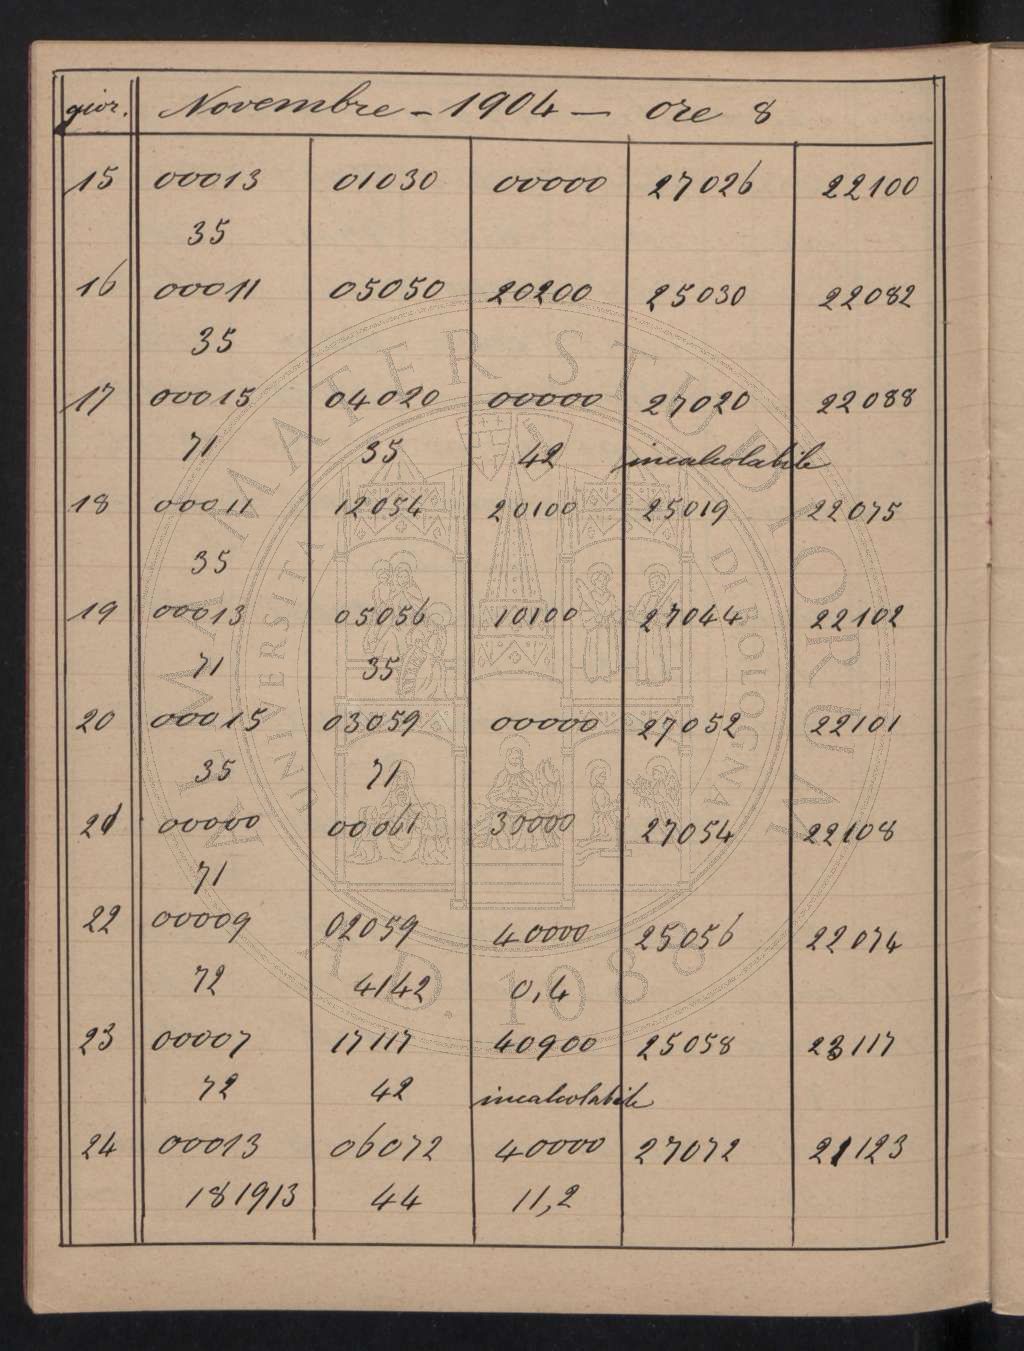 gior. Novembre - 1904 - ore 8
15 00013 01030 00000 27026 22100
35
16 00011 05050 20200 25030 22082
35
17 00015 04020 00000 27020 22088
71 35 42 incalcolabile
18 00011 12054 20100 25019 22075
35
19 00013 05056 10100 27044 22102
71 35
20 00015 03059 00000 27052 22101
35 71
21 00000 00061 30000 27054 22108
71
22 00009 02059 40000 25056 22074
72 4142 0,4
23 00007 17117 40900 25058 23117
72 42 incalcolabile
24 00013 06072 40000 27072 21123
181913 44 11,2
ALMA MATER STUDIORUM
UNIVERSITÀ DI BOLOGNA
A.D. 1088